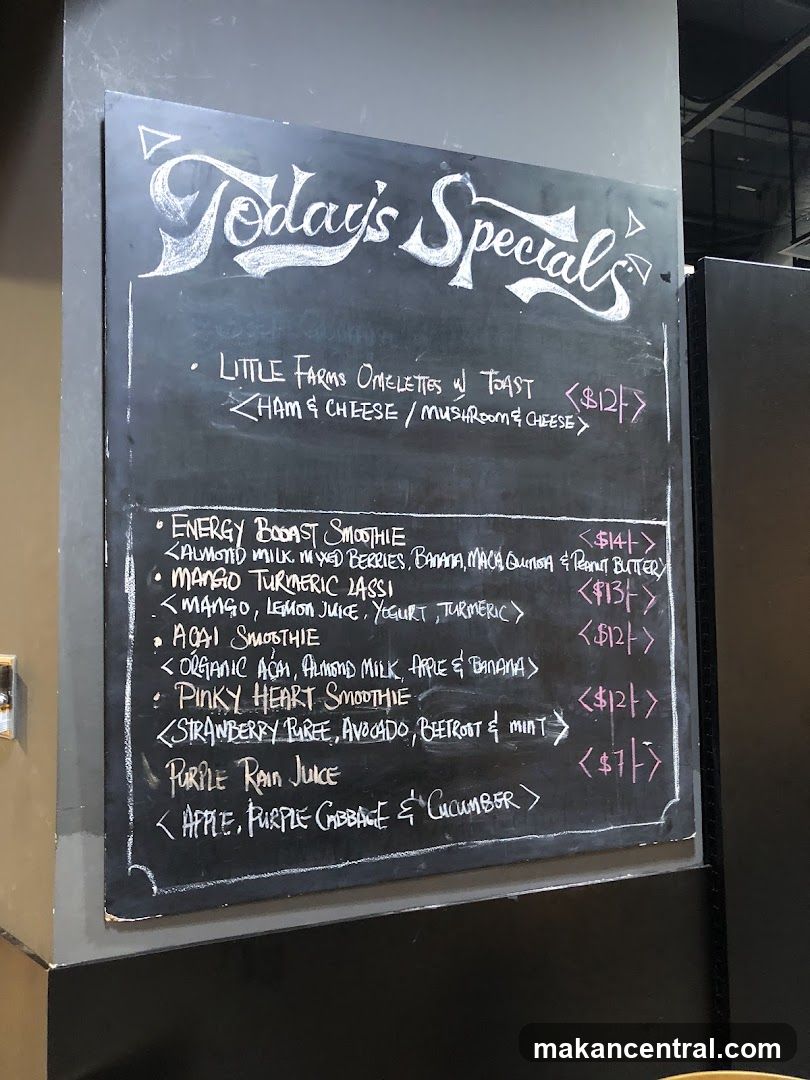 Today's Specials
• LITTLE FARMS OMELETTES W/ TOAST <$12/->
<HAM & CHEESE / MUSHROOM & CHEESE>
• ENERGY BOOAST SMOOTHIE <$14/->
<ALMOND MILK MIXED BERRIES, BANANA, MACA, QUINOA & PEANUT BUTTER>
• MANGO TURMERIC LASSI <$13/->
<MANGO, LEMON JUICE, YOGURT, TURMERIC>
• AÇAI SMOOTHIE <$12/->
<ORGANIC AÇAI, ALMOND MILK, APPLE & BANANA>
• PINKY HEART SMOOTHIE <$12/->
<STRAWBERRY PUREE, AVOCADO, BEETROOT & MINT>
PURPLE RAIN JUICE <$7/->
<APPLE, PURPLE CABBAGE & CUCUMBER>
makancentral.com